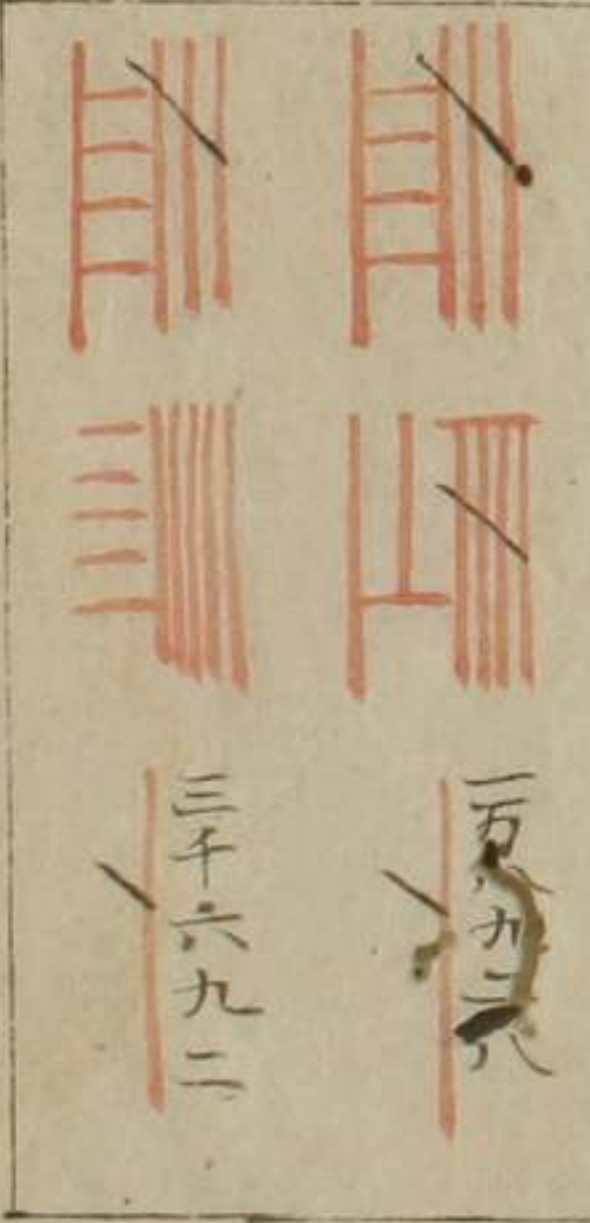 一万八九二八
三千六九二